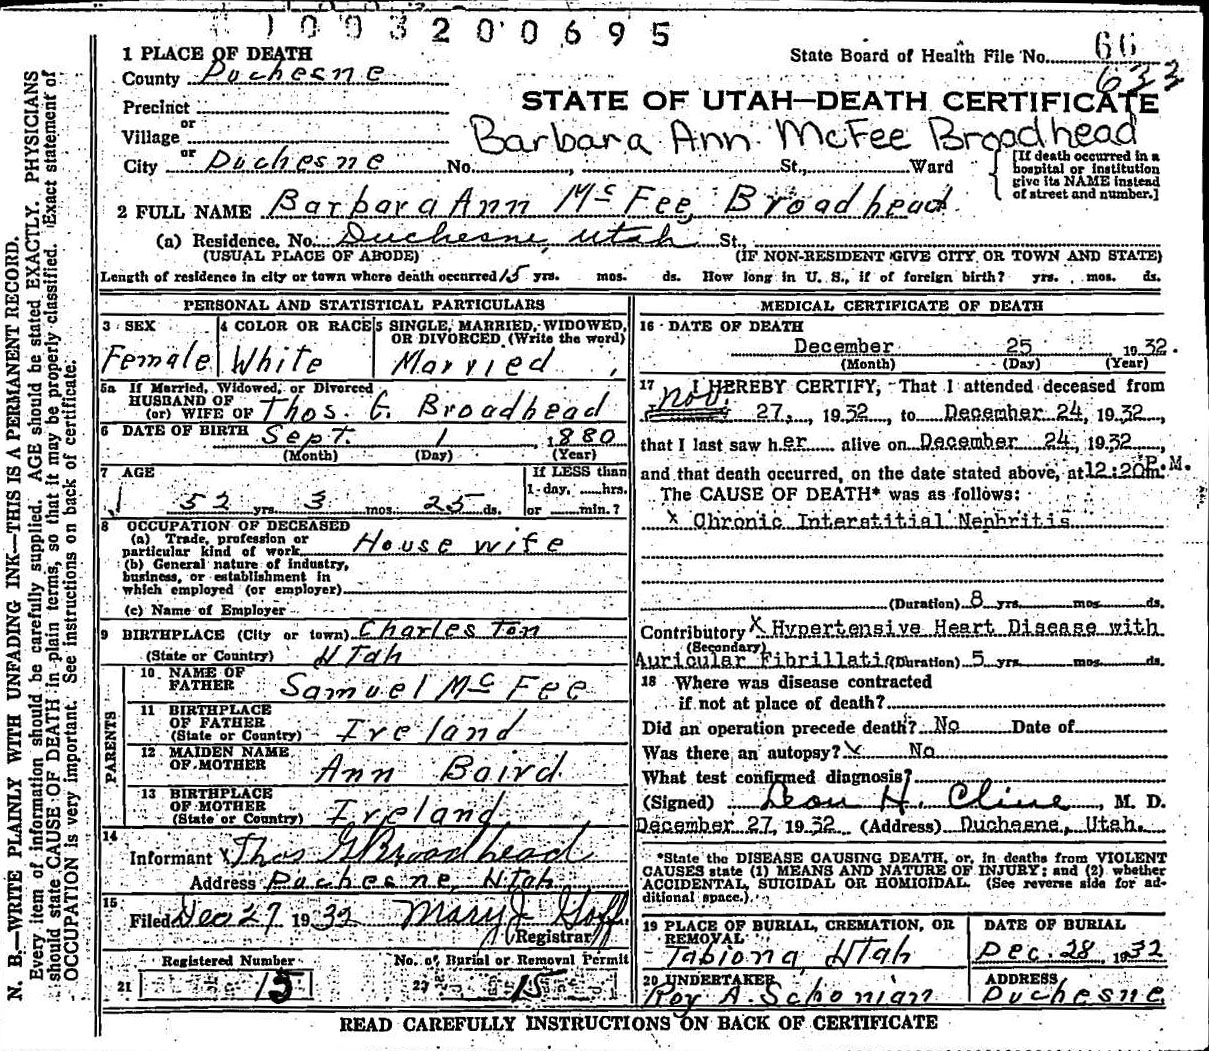 1003200695
1 PLACE OF DEATH
State Board of Health File No. 66
County Duchesne
633
Precinct
STATE OF UTAH—DEATH CERTIFICATE
or
Village
Barbara Ann McFee Broadhead
City or Duchesne No. , St., Ward
[If death occurred in a hospital or institution give its NAME instead of street and number.]
2 FULL NAME Barbara Ann McFee Broadhead
(a) Residence. No. Duchesne, Utah St.,
(USUAL PLACE OF ABODE) (IF NON-RESIDENT GIVE CITY OR TOWN AND STATE)
Length of residence in city or town where death occurred 15 yrs. mos. ds. How long in U. S., if of foreign birth? yrs. mos. ds.
PERSONAL AND STATISTICAL PARTICULARS
3 SEX
Female
4 COLOR OR RACE
White
5 SINGLE, MARRIED, WIDOWED, OR DIVORCED (Write the word)
Married
5a If Married, Widowed, or Divorced
HUSBAND OF
(or) WIFE OF Thos. G. Broadhead
6 DATE OF BIRTH Sept. 1 1880
(Month) (Day) (Year)
7 AGE
If LESS than
1 day, hrs.
52 yrs. 3 mos. 25 ds. or min.?
8 OCCUPATION OF DECEASED
(a) Trade, profession or
particular kind of work House wife
(b) General nature of industry,
business, or establishment in
which employed (or employer)
(c) Name of Employer
9 BIRTHPLACE (City or town) Charleston
(State or Country) Utah
PARENTS
10 NAME OF
FATHER Samuel McFee
11 BIRTHPLACE
OF FATHER
(State or Country) Ireland
12 MAIDEN NAME
OF MOTHER Ann Baird
13 BIRTHPLACE
OF MOTHER
(State or Country) Ireland
14
Informant x Thos G Broadhead
Address Duchesne, Utah
15
Filed Dec 27 1932 Mary J Goff
Registrar
Registered Number No. of Burial or Removal Permit
21 15 22 15
MEDICAL CERTIFICATE OF DEATH
16 DATE OF DEATH
December 25 1932.
(Month) (Day) (Year)
17 I HEREBY CERTIFY, That I attended deceased from
Nov. 27, 1932, to December 24, 1932,
that I last saw her alive on December 24, 1932,
and that death occurred, on the date stated above, at 12:20 P.M.
The CAUSE OF DEATH* was as follows:
x Chronic Interstitial Nephritis
(Duration) 8 yrs. mos. ds.
Contributory x Hypertensive Heart Disease with
(Secondary)
Auricular Fibrillatio (Duration) 5 yrs. mos. ds.
18 Where was disease contracted
if not at place of death?
Did an operation precede death? No Date of
Was there an autopsy? x No
What test confirmed diagnosis?
(Signed) Leon H. Cline, M. D.
December 27, 1932 (Address) Duchesne, Utah.
*State the DISEASE CAUSING DEATH, or, in deaths from VIOLENT
CAUSES state (1) MEANS AND NATURE OF INJURY; and (2) whether
ACCIDENTAL, SUICIDAL OR HOMICIDAL. (See reverse side for additional space.)
19 PLACE OF BURIAL, CREMATION, OR REMOVAL
Tabiona, Utah
DATE OF BURIAL
Dec. 28 1932
20 UNDERTAKER
Roy A. Schonian
ADDRESS
Duchesne
READ CAREFULLY INSTRUCTIONS ON BACK OF CERTIFICATE
N. B.—WRITE PLAINLY WITH UNFADING INK—THIS IS A PERMANENT RECORD.
Every item of information should be carefully supplied. AGE should be stated EXACTLY. PHYSICIANS
should state CAUSE OF DEATH in plain terms, so that it may be properly classified. Exact statement of
OCCUPATION is very important. See instructions on back of certificate.